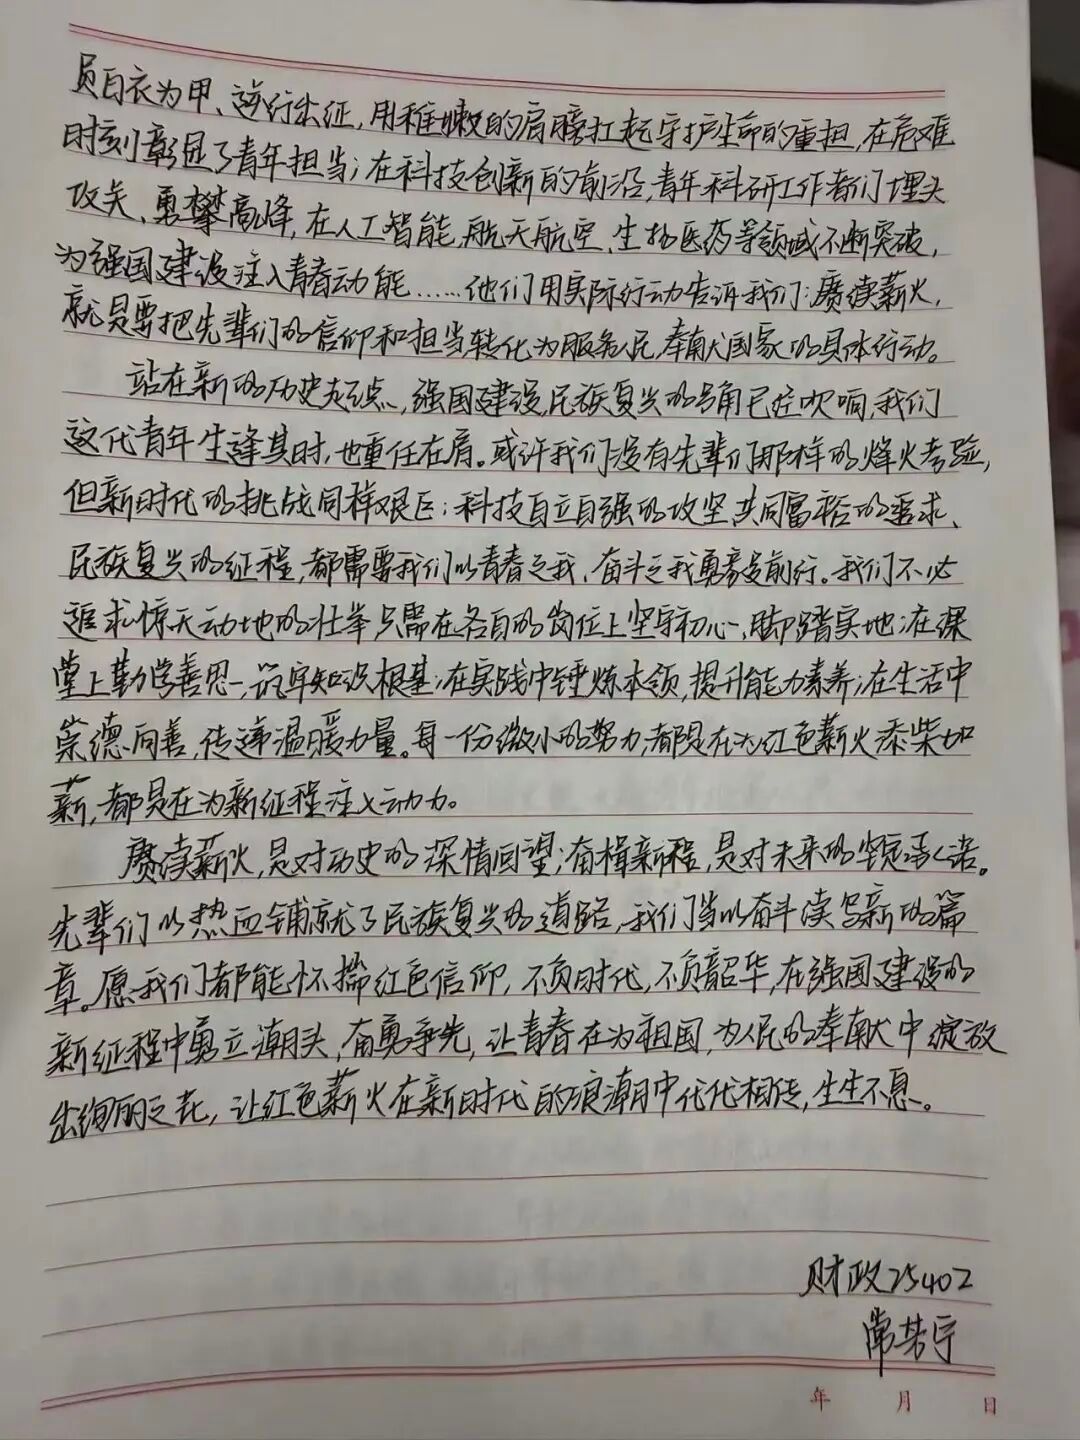 员白衣为甲、逆行出征，用稚嫩的肩膀扛起守护生命的重担，在危难
时刻彰显了青年担当；在科技创新的前沿，青年科研工作者们埋头
攻关、勇攀高峰，在人工智能、航天航空、生物医药等领域不断突破，
为强国建设注入青春动能……他们用实际行动告诉我们：赓续薪火，
就是要把先辈们的信仰和担当转化为服务人民、奉献国家的具体行动。
站在新的历史起点，强国建设、民族复兴的号角已经吹响，我们
这代青年生逢其时，也重任在肩。或许我们没有先辈们那样的烽火考验，
但新时代的挑战同样艰巨：科技自立自强的攻坚、共同富裕的追求、
民族复兴的征程，都需要我们以青春之我、奋斗之我勇毅前行。我们不必
追求惊天动地的壮举，只需在各自的岗位上坚守初心、脚踏实地：在课
堂上勤学善思，筑牢知识根基；在实践中锤炼本领，提升能力素养；在生活中
崇德向善，传递温暖力量。每一份微小的努力，都是在为红色薪火添柴加
薪，都是在为新征程注入动力。
赓续薪火，是对历史的深情回望；奋楫新程，是对未来的坚定承诺。
先辈们以热血铺就了民族复兴的道路，我们当以奋斗续写新的篇
章。愿我们都能怀揣红色信仰，不负时代，不负韶华，在强国建设的
新征程中勇立潮头，奋勇争先，让青春在为祖国，为人民的奉献中绽放
出绚丽之花，让红色薪火在新时代的浪潮中代代相传，生生不息。
财政25402
常芳宁
年 月 日